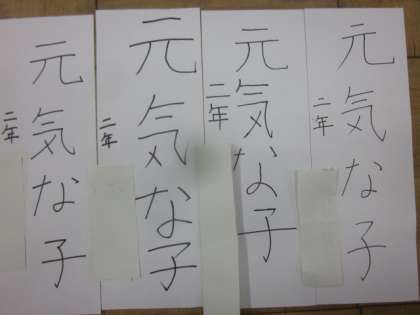 元気な子
二年
元気な子
二年
元気な子
二年
元気な子
二年